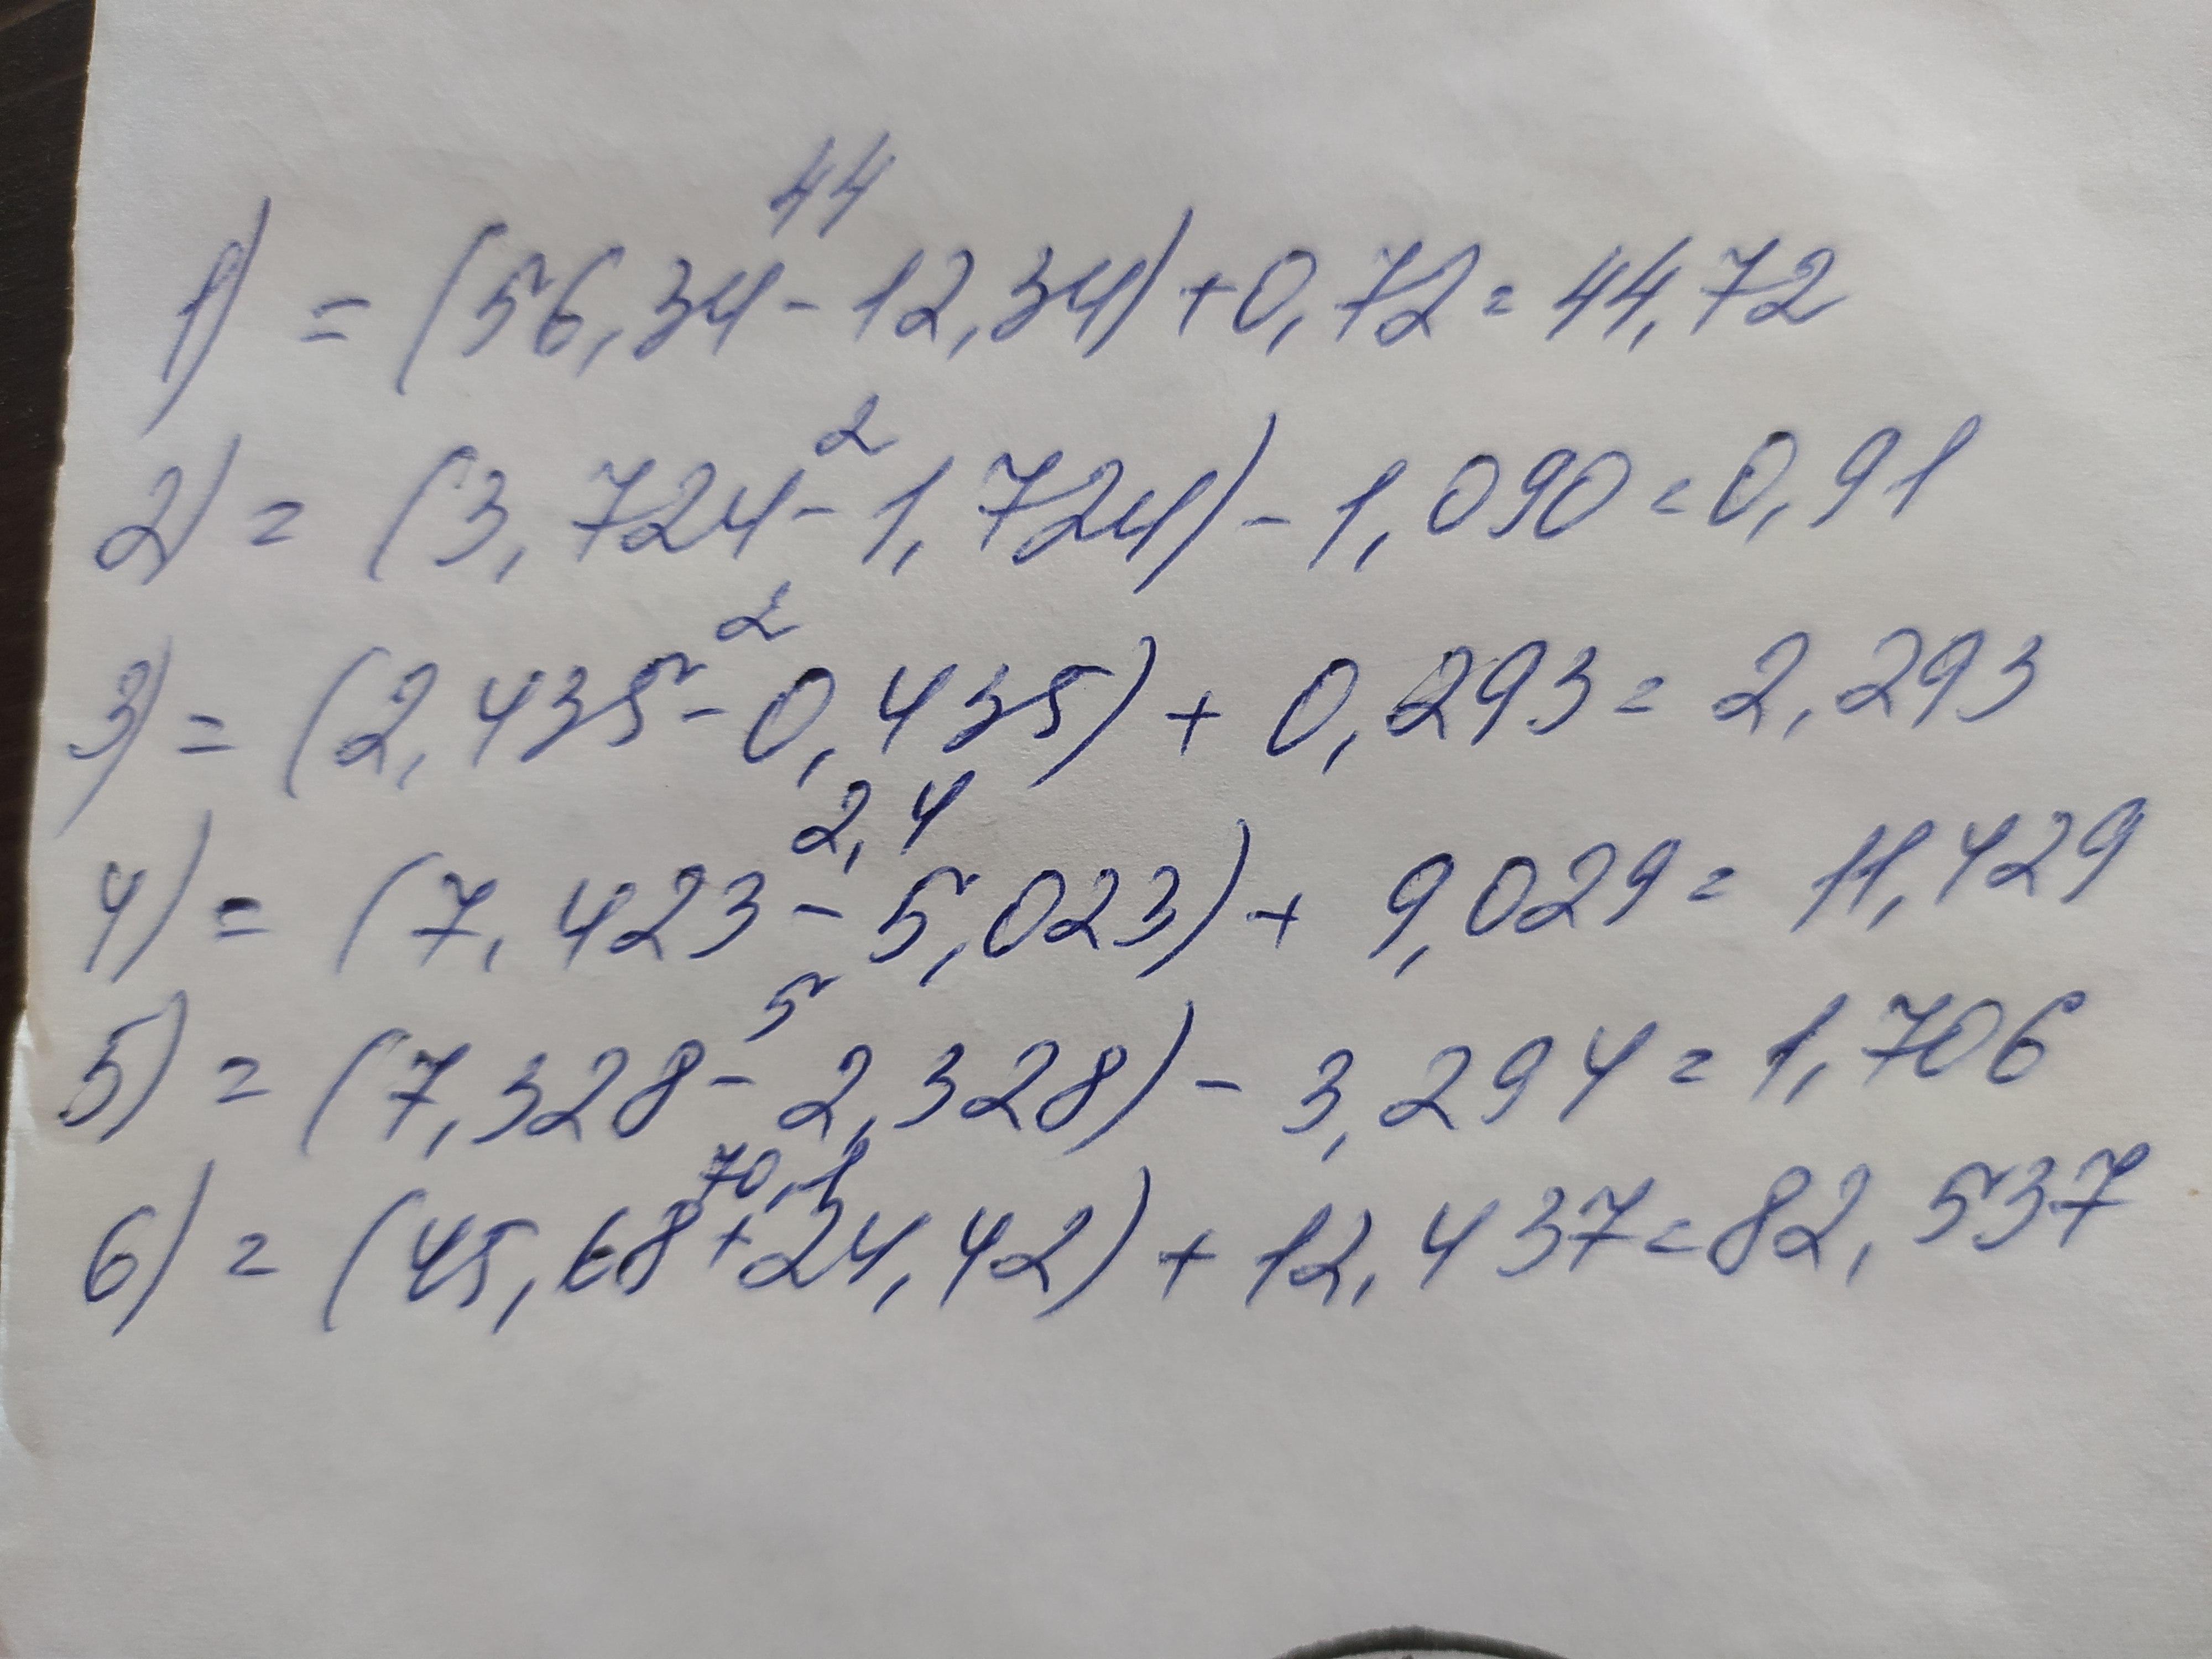 44
1) = (56,34 - 12,34) + 0,72 = 44,72
2
2) = (3,724 - 1,724) - 1,090 = 0,91
2
3) = (2,435 - 0,435) + 0,293 = 2,293
2,4
4) = (7,423 - 5,023) + 9,029 = 11,429
5
5) = (7,328 - 2,328) - 3,294 = 1,706
70,1
6) = (45,68 + 24,42) + 12,437 = 82,537